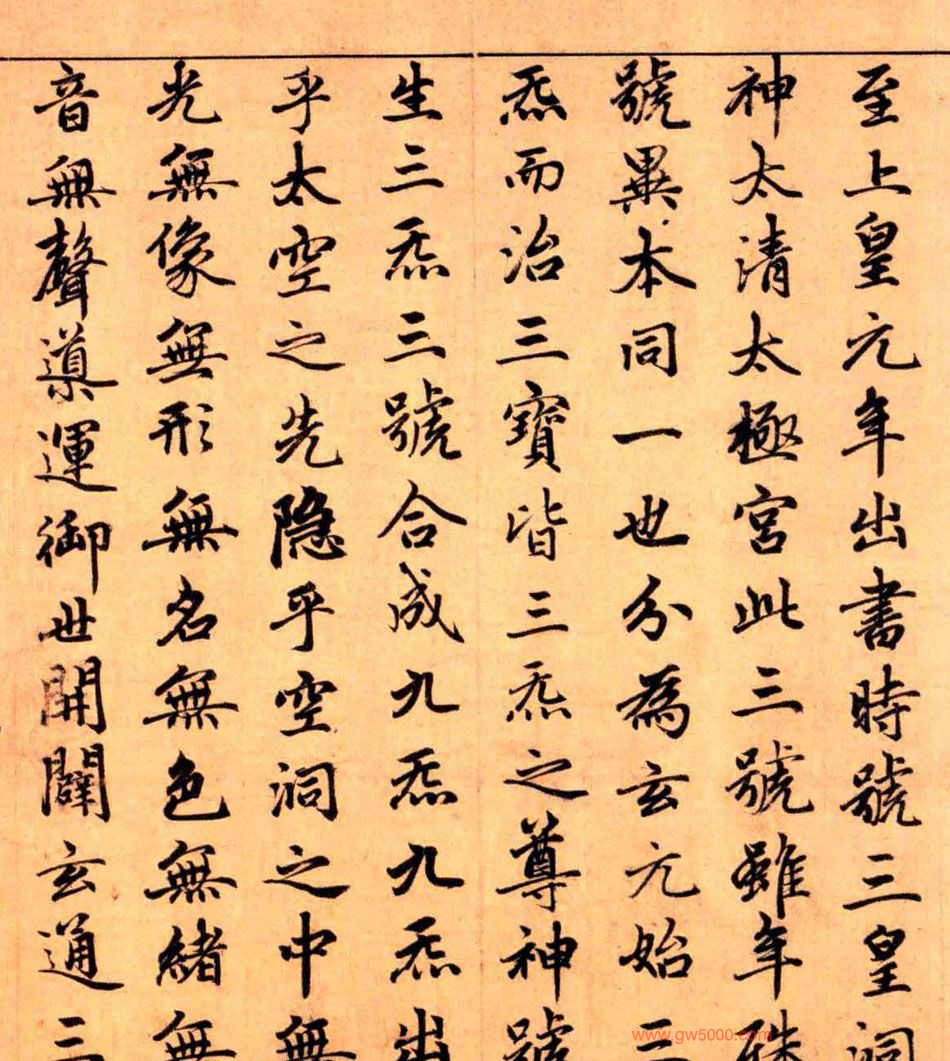 至上皇元年出書時號三皇洞
神太清太極宮此三號雖年殊
號異本同一也分為玄元始三
炁而治三寶皆三炁之尊神號
生三炁三號合成九炁九炁出
乎太空之先隐乎空洞之中無
光無像無形無名無色無緒無
音無聲導運御世開闢玄通三
www.gw5000.com